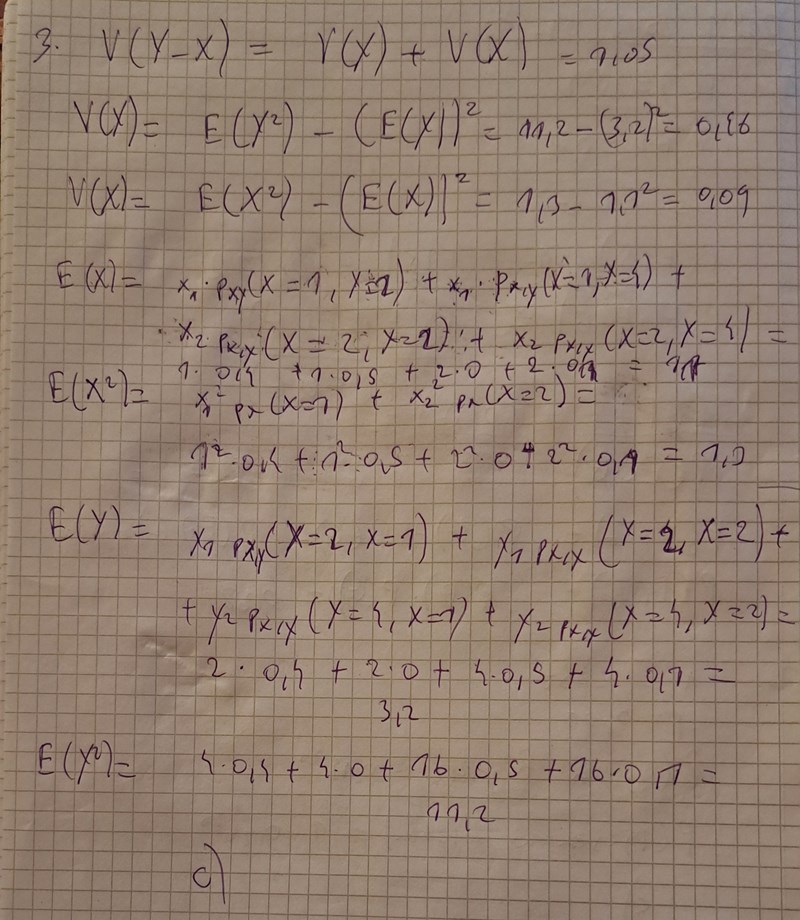 3. V(Y-X) = V(X) + V(X) = 1,05
V(X)= E(Y²) - (E(X))² = 11,2 - (3,2)² = 0,96
V(X)= E(X²) - (E(X))² = 1,3 - 1,1² = 0,09
E(X)= x₁·pxy(X=1, Y=2) + x₁·px,y(X=1, X=4) +
x₂ px,x(X=2, X=2) + x₂ px,x(X=2, X=4) =
1·0,4 + 1·0,5 + 2·0 + 2·0,1 = 1,1
E(X²)= x₁² px(X=1) + x₂² px(X=2) =
1²·0,4 + 1²·0,5 + 2²·0 + 2²·0,1 = 1,3
E(Y)= Y₁ px,y(X=2, X=1) + Y₁ px,x(X=2, X=2) +
+ Y₂ px,y(Y=4, X=1) + Y₂ px,x(X=4, X=2) =
2·0,4 + 2·0 + 4·0,5 + 4·0,1 =
3,2
E(Y²)= 4·0,4 + 4·0 + 16·0,5 + 16·0,1 =
11,2
c)